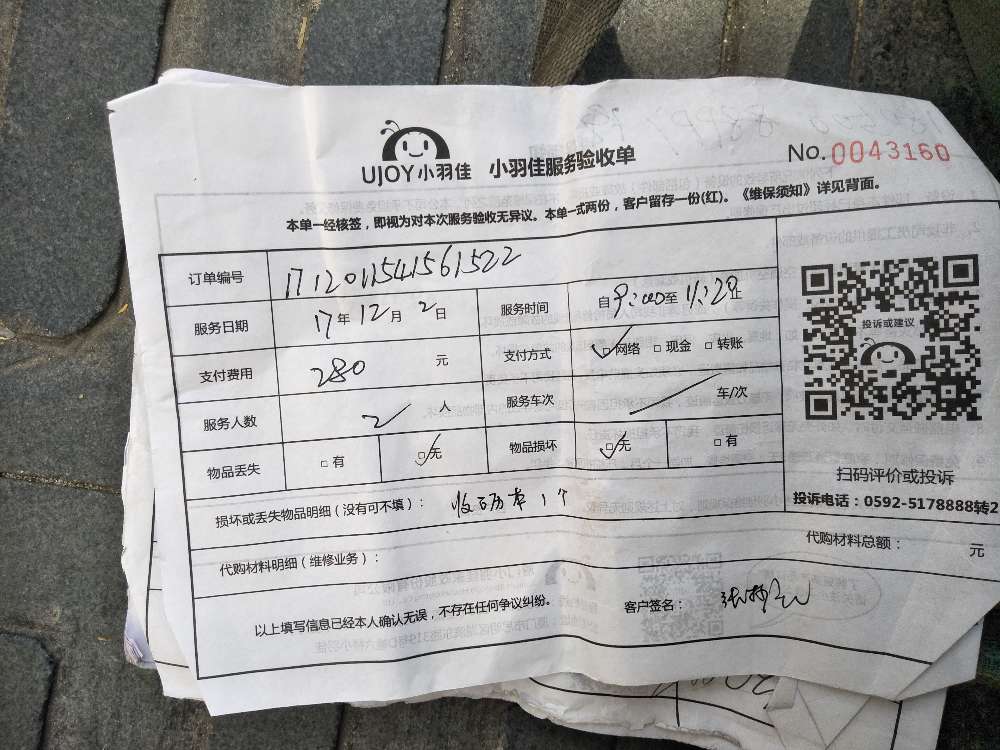 UJOY小羽佳 小羽佳服务验收单 No.0043160
本单一经核签，即视为对本次服务验收无异议。本单一式两份，客户留存一份(红)。《维保须知》详见背面。
订单编号 1712011541561522
服务日期 17年12月2日 服务时间 自9:00至11:29止
支付费用 280元 支付方式 ☑网络 □现金 □转账
服务人数 2人 服务车次 车/次
物品丢失 □有 ☑无 物品损坏 ☑无 □有
投诉或建议
扫码评价或投诉
投诉电话：0592-5178888转2
损坏或丢失物品明细（没有可不填）： 1个
代购材料明细（维修业务）： 代购材料总额： 元
以上填写信息已经本人确认无误，不存在任何争议纠纷。 客户签名：